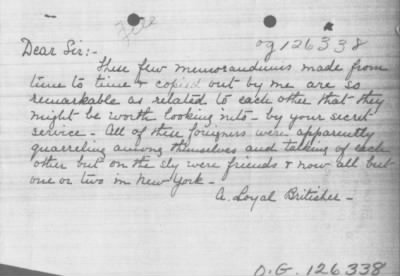 Fire
og 126338
Dear Sir:-
These few memorandums made from
time to time & copied out by me are so
remarkable as related to each other that they
might be worth looking into - by your secret
service - All of these foreigners were apparently
quarreling among themselves and talking of each
other but on the sly were friends & now all but
one or two in New York -
A. Loyal Britisher -
O.G. 126338